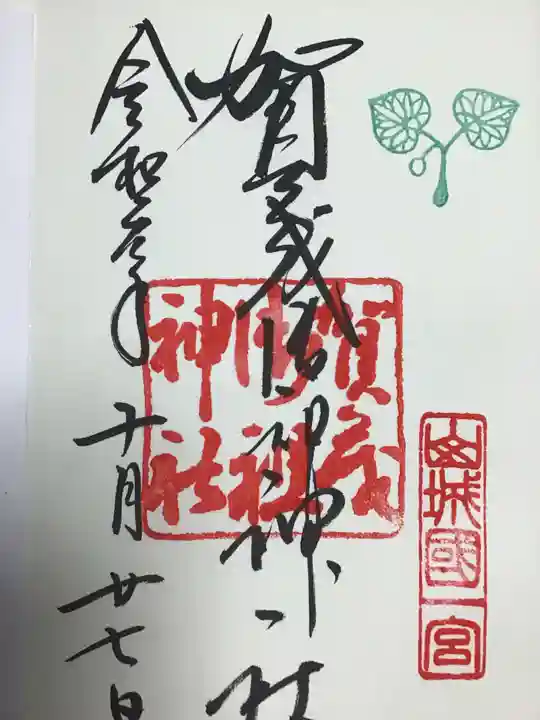 山城國一宮
賀茂御祖神社
賀茂御祖神社
令和元年十月廿七日